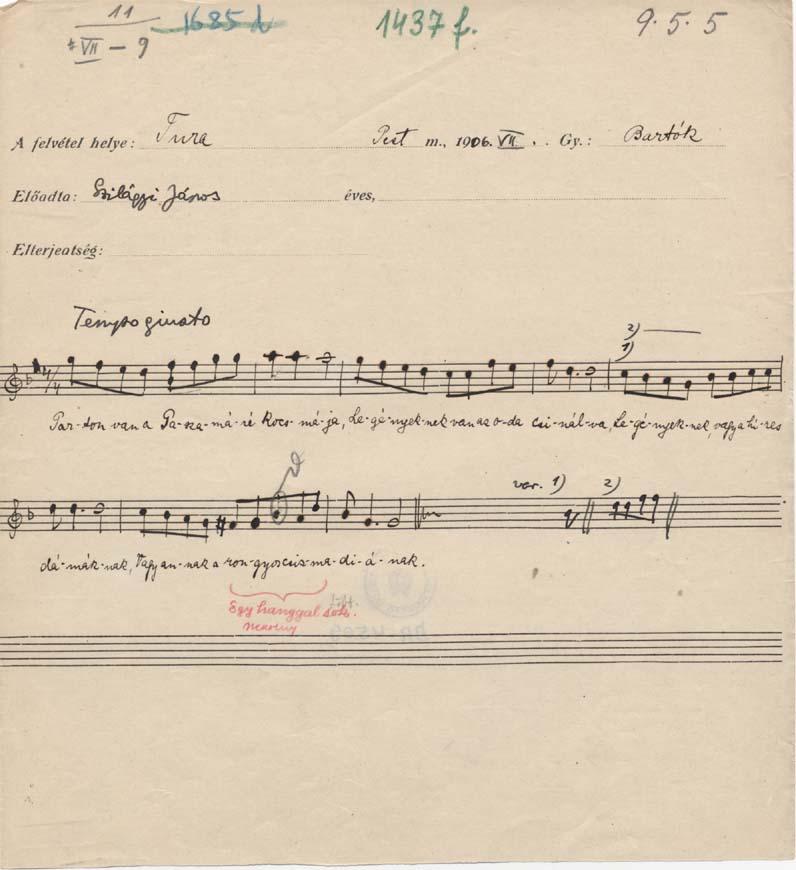 11
VII - 9
1685 d
1437 f.
9. 5. 5
A felvétel helye: Tura Pest m., 1906. VII. Gy.: Bartók
Előadta: Szilágyi János éves,
Elterjeatség:
Tempo giusto
2)
1)
4/4
Par-ton van a Pa-sza-má-ré kocs-má-ja, Le-gé-nyek-nek van az o-da csi-nál-va, Le-gé-nyek-nek, vagy a hí-res
var. 1) 2)
dá-mák-nak, Vagy an-nak a ron-gyos csiz-ma-di-á-nak.
Egy hanggal sok.